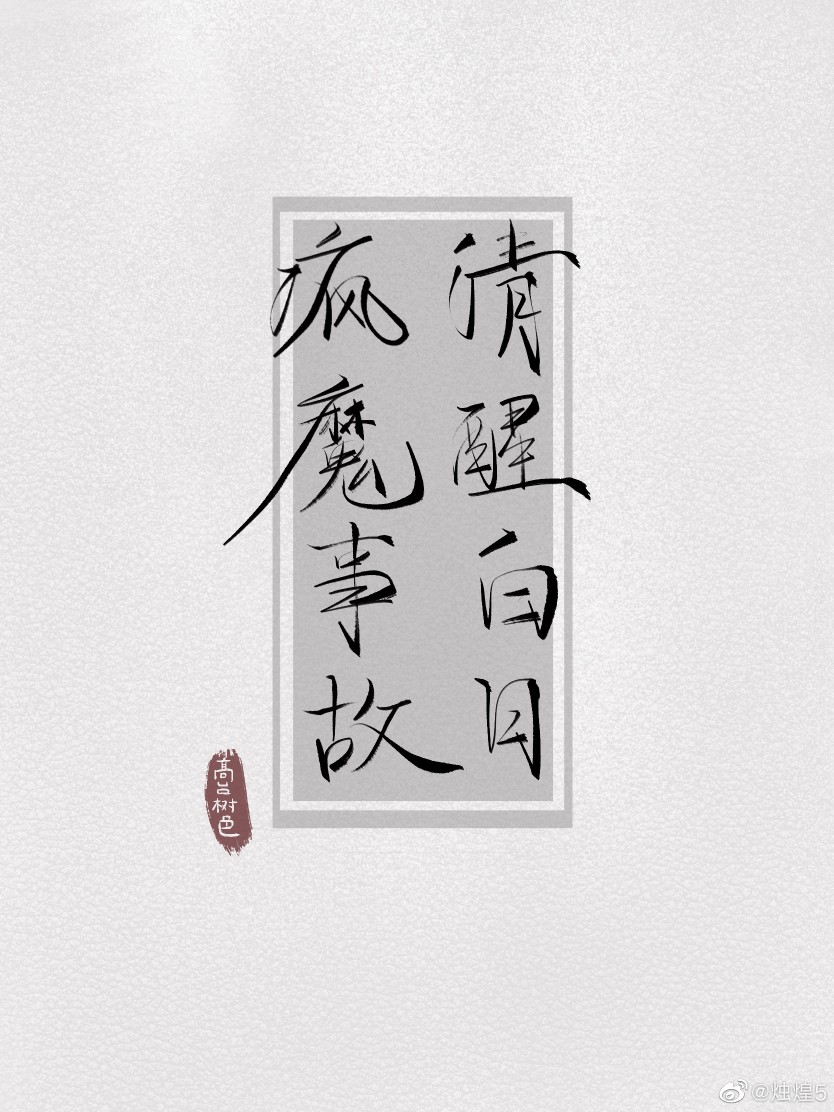 清醒白日
疯魔事故
高台树色
@烛煌5